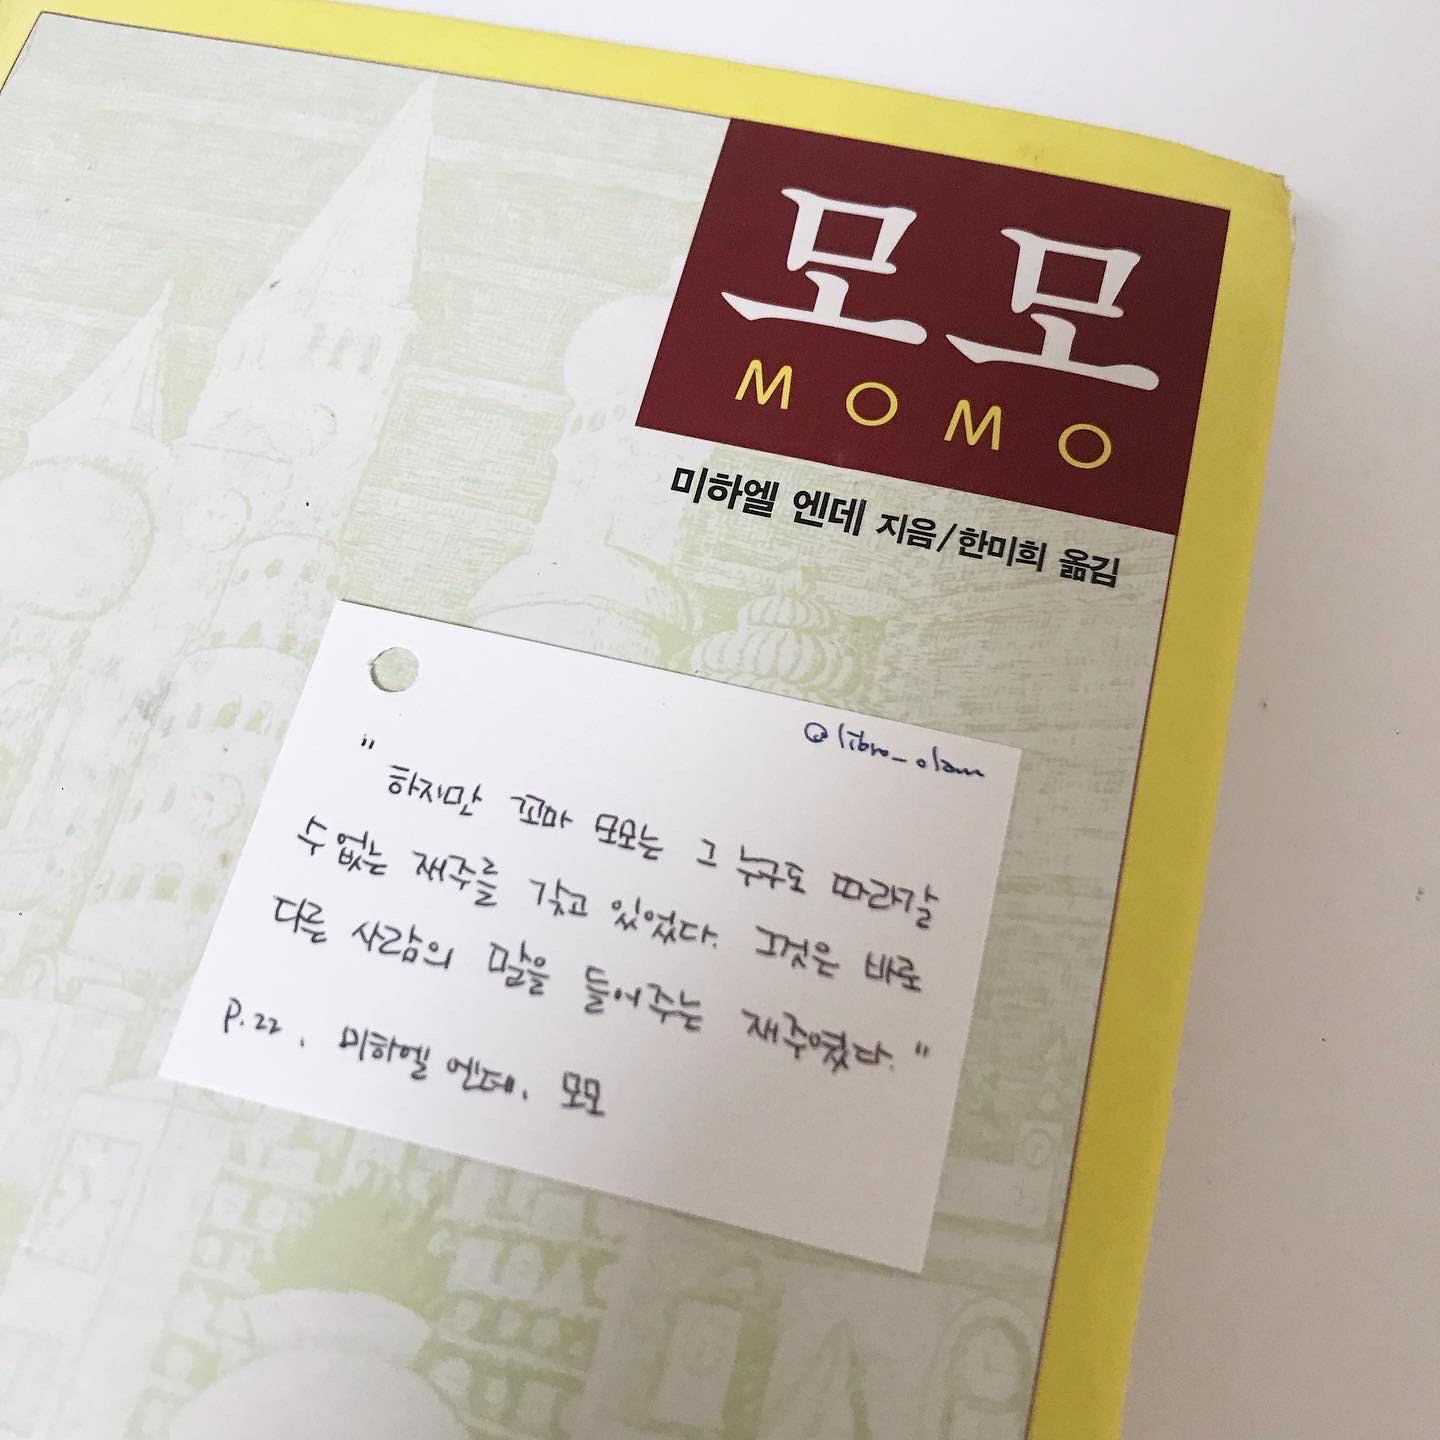 모모
MOMO
미하엘 엔데 지음/한미희 옮김
@libro_olam
"하지만 꼬마 모모는 그 누구도 따라갈
수 없는 재주를 갖고 있었다. 그것은 바로
다른 사람의 말을 들어주는 재주였다."
P.22, 미하엘 엔데, 모모